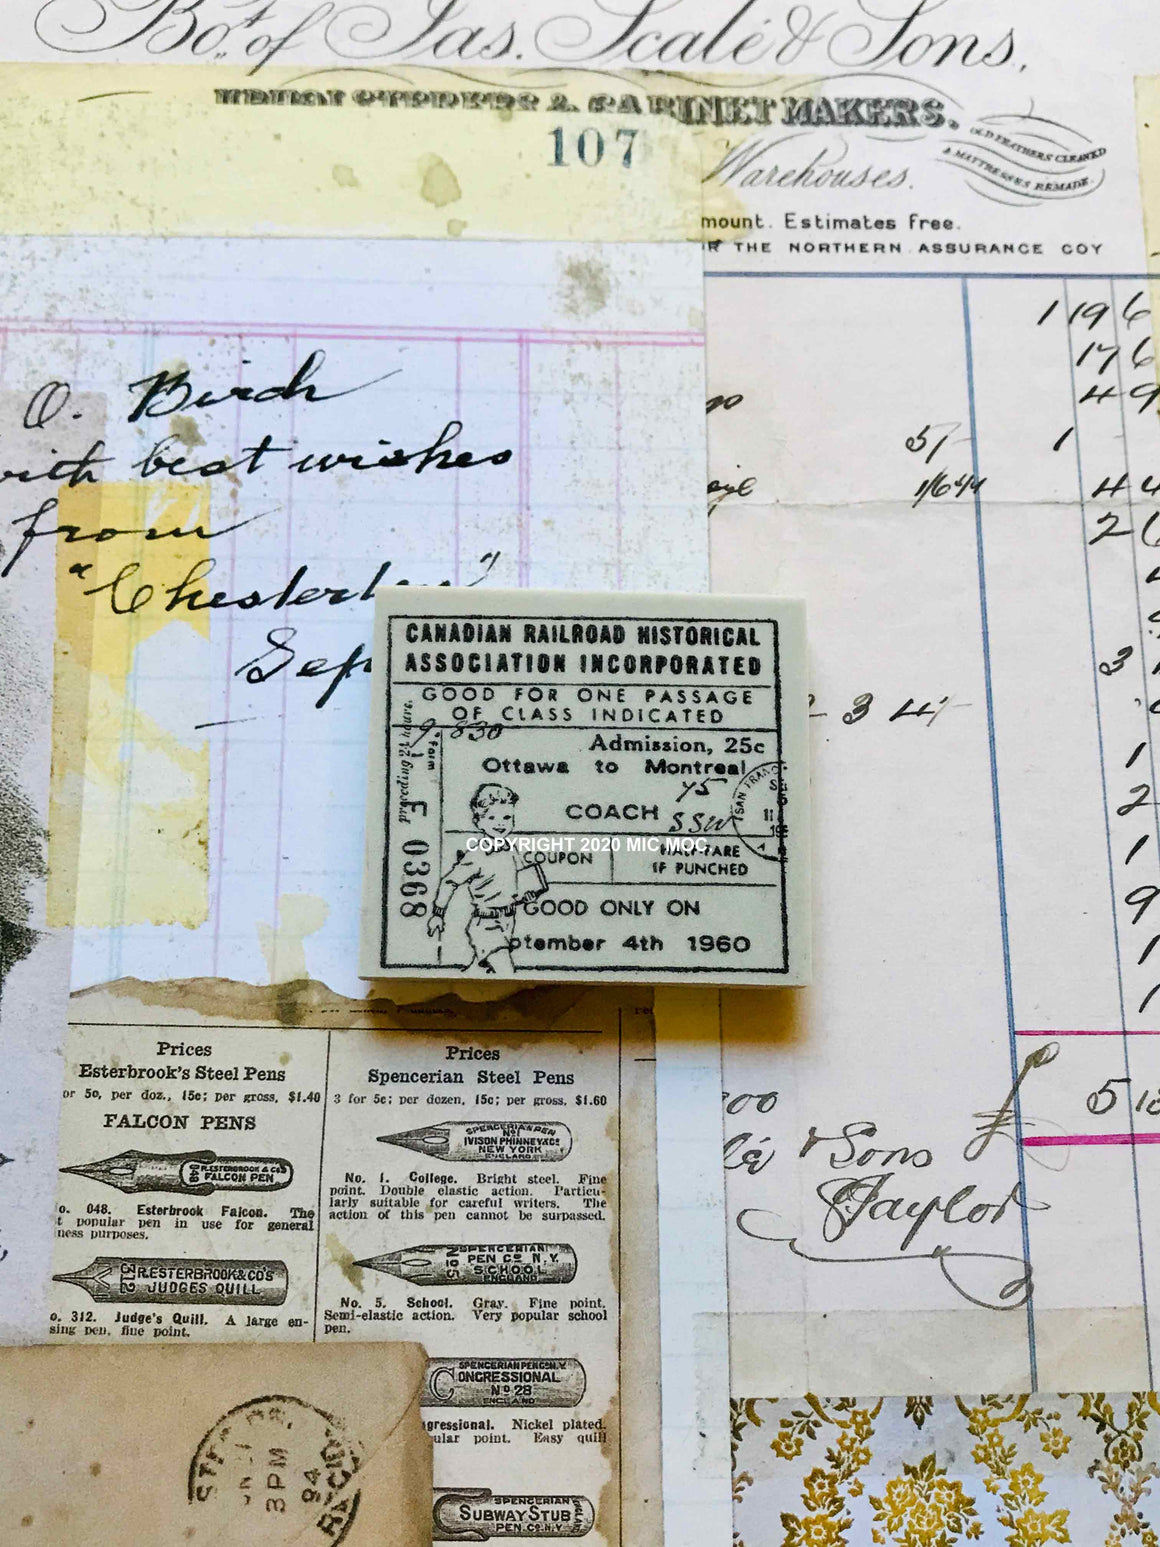 Bot. of Jas. Scale & Sons,
CABINET MAKERS.
107
OLD FEATHERS CLEANED
& MATTRESSES REMADE.
Warehouses.
mount. Estimates free.
THE NORTHERN ASSURANCE COY
O. Birch
with best wishes
from
"Chester
Sep
1 19 6
17 6
4 9
5/- 1
1/6 4 4
2 6
3
2 3 4/-
1
2
1
9
1
1
CANADIAN RAILROAD HISTORICAL
ASSOCIATION INCORPORATED
GOOD FOR ONE PASSAGE
OF CLASS INDICATED
9 830
preceding 24 hours.
Form
E 0368
Admission, 25c
Ottawa to Montreal
COACH
45
SSW
SAN FRANC
COPYRIGHT 2020 MIC MOC
COUPON
HALF-FARE
IF PUNCHED
GOOD ONLY ON
ptember 4th 1960
Prices
Esterbrook's Steel Pens
or 5c, per doz., 15c; per gross, $1.40
FALCON PENS
R.ESTERBROOK & CO'S
FALCON PEN
048
o. 048. Esterbrook Falcon. The
t popular pen in use for general
ness purposes.
312
R.ESTERBROOK&CO'S
JUDGES QUILL
o. 312. Judge's Quill. A large en-
sing pen, fine point.
Prices
Spencerian Steel Pens
3 for 5c; per dozen, 15c; per gross, $1.60
SPENCERIAN PEN
No 1
IVISON PHINNEY & CO
NEW YORK
ENGLAND
No. 1. College. Bright steel. Fine
point. Double elastic action. Particu-
larly suitable for careful writers. The
action of this pen cannot be surpassed.
No 5
SPENCERIAN
PEN Co N.Y.
SCHOOL
ENGLAND
No. 5. School. Gray. Fine point.
Semi-elastic action. Very popular school
pen.
SPENCERIAN PEN CO N.Y.
CONGRESSIONAL
No 28
ENGLAND
gressional. Nickel plated.
ular point. Easy quill
SPENCERIAN
SUBWAY STUB
PEN CO. N.Y.
ENGLAND
00
5 18
& Sons
Taylor
3 PM
94
REC'D